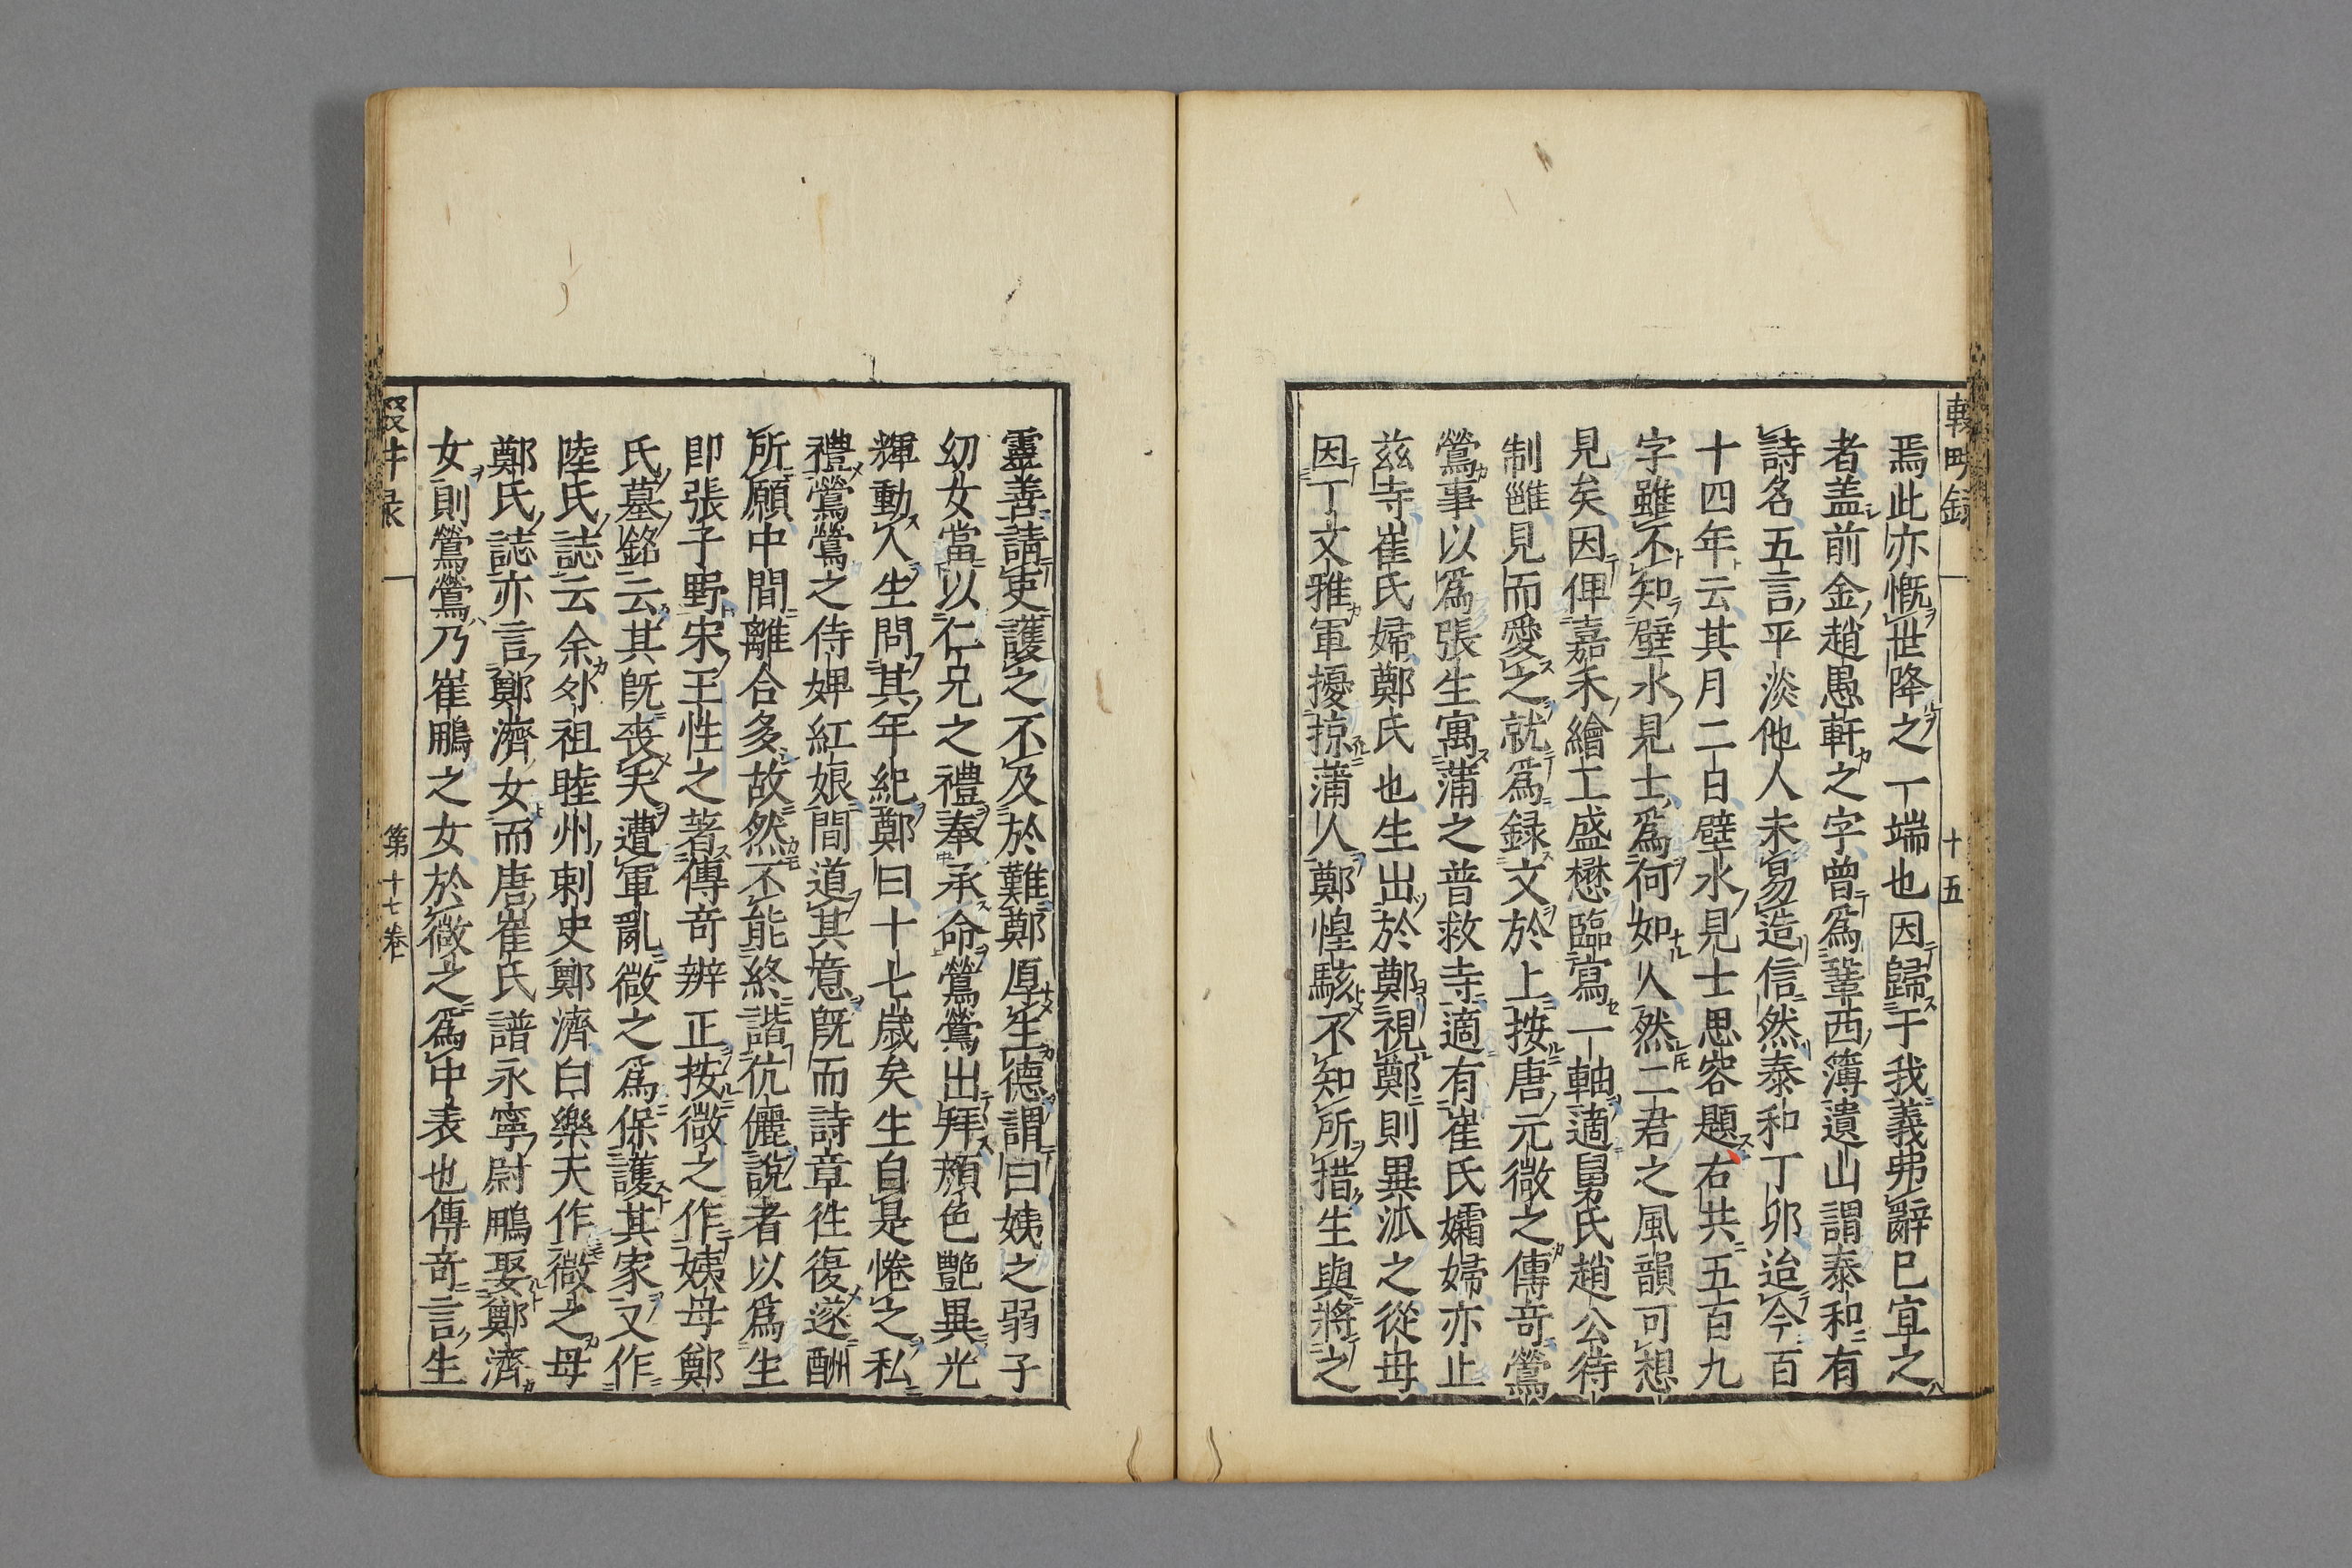 十五
焉此亦慨世降之一端也因歸于我義弗辭已宜之
者盖前金趙愚軒之字曾爲鞏西簿遺山謂泰和有
詩名五言平淡他人未易造信然泰和丁卯迨今百
十四年云其月二日壁水見士思容題右共五百九
字雖不知壁水見士爲何如人然二君之風韻可想
見矣因俾嘉禾繪工盛懋臨寫一軸適舅氏趙公待
制雝見而愛之就爲録文於上按唐元微之傳竒鶯
鶯事以爲張生寓蒲之普救寺適有崔氏孀婦亦止
兹寺崔氏婦鄭氏也生出於鄭視鄭則異派之從母
因丁文雅軍擾掠蒲人鄭惶駭不知所措生與將之
靈善請吏護之不及於難鄭厚生德謂曰姨之弱子
幼女當以仁兄之禮奉承命鶯鶯出拜頰色艷異光
輝動人生問其年紀鄭曰十七歲矣生自是惓之私
禮鶯鶯之侍婢紅娘間道其意旣而詩章徃復遂酬
所願中間離合多故然不能終諧伉儷説者以爲生
即張子野宋王性之著傳竒辨正按微之作姨母鄭
氏墓銘云其旣喪夫遭軍亂微之爲保護其家又作
陸氏誌云余外祖睦州刺史鄭濟白樂天作微之母
鄭氏誌亦言鄭濟女而唐崔氏譜永寧尉鵬娶鄭濟
女則鶯鶯乃崔鵬之女於微之爲中表也傳竒言生
第十七卷